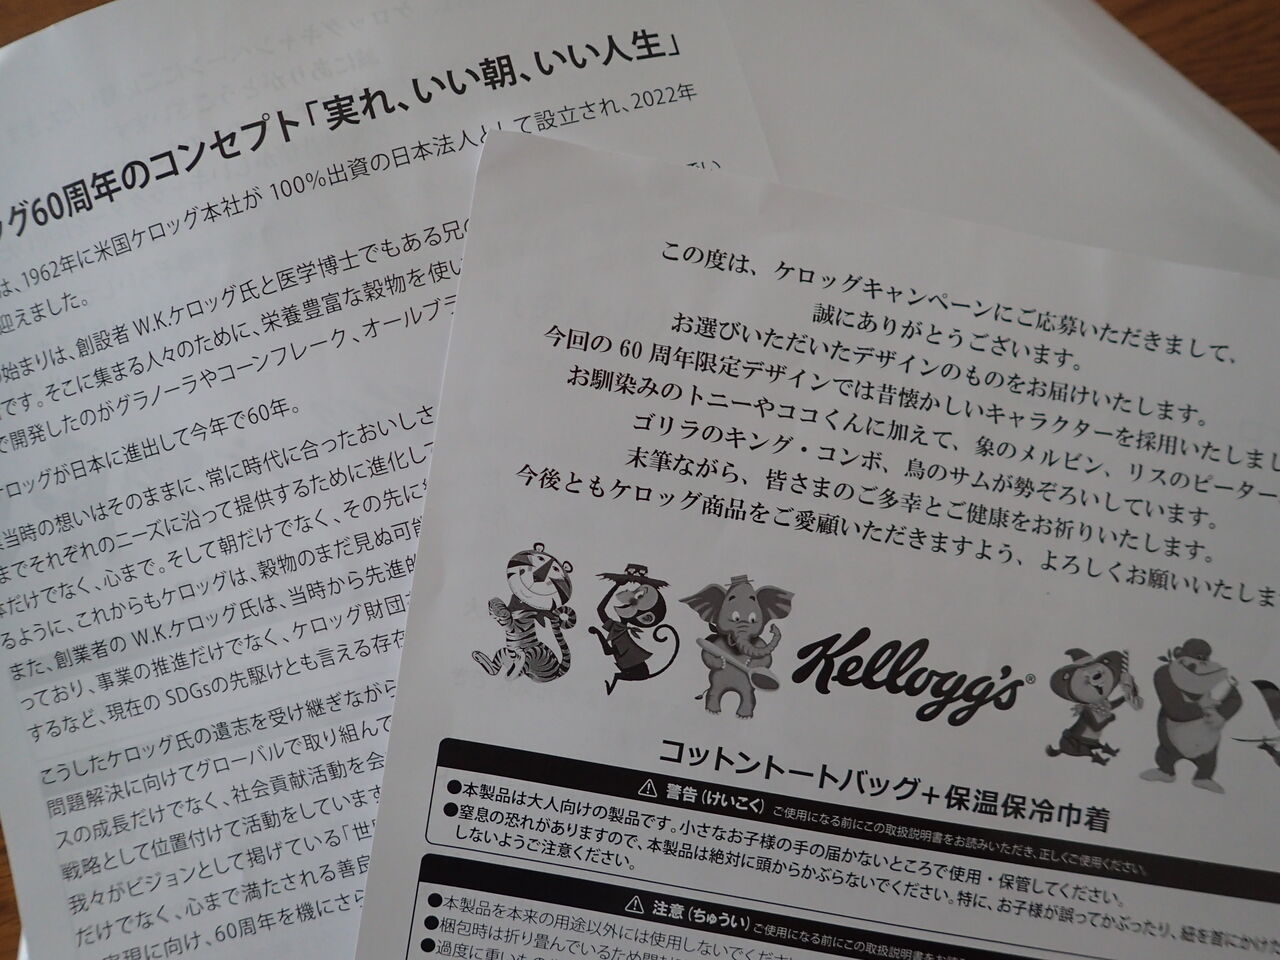 ッグ60周年のコンセプト「実れ、いい朝、いい人生」
は、1962年に米国ケロッグ本社が 100%出資の日本法人として設立され、2022年
迎えました。
始まりは、創設者 W.K.ケロッグ氏と医学博士でもある兄の
です。そこに集まる人々のために、栄養豊富な穀物を使い
で開発したのがグラノーラやコーンフレーク、オールブラ
ケロッグが日本に進出して今年で60年。
当時の想いはそのままに、常に時代に合ったおいしさ
までそれぞれのニーズに沿って提供するために進化し
だけでなく、心まで。そして朝だけでなく、その先に
るように、これからもケロッグは、穀物のまだ見ぬ可能
また、創業者の W.K.ケロッグ氏は、当時から先進的
っており、事業の推進だけでなく、ケロッグ財団
するなど、現在の SDGsの先駆けとも言える存在
こうしたケロッグ氏の遺志を受け継ぎながら
問題解決に向けてグローバルで取り組んで
スの成長だけでなく、社会貢献活動を会
戦略として位置付けて活動をしています
我々がビジョンとして掲げている「世
だけでなく、心まで満たされる善良
実現に向け、60周年を機にさら
この度は、ケロッグキャンペーンにご応募いただきまして、
誠にありがとうございます。
お選びいただいたデザインのものをお届けいたします。
今回の 60 周年限定デザインでは昔懐かしいキャラクターを採用いたしまし
お馴染みのトニーやココくんに加えて、象のメルビン、リスのピーター
ゴリラのキング・コンボ、鳥のサムが勢ぞろいしています。
末筆ながら、皆さまのご多幸とご健康をお祈りいたします。
今後ともケロッグ商品をご愛顧いただきますよう、よろしくお願いいたしま
Kellogg's®
コットントートバッグ+保温保冷巾着
警告(けいこく) ご使用になる前にこの取扱説明書をお読みいただき、正しくご使用ください。
●本製品は大人向けの製品です。小さなお子様の手の届かないところで使用・保管してください。
●窒息の恐れがありますので、本製品は絶対に頭からかぶらないでください。特に、お子様が誤ってかぶったり、紐を首にかけ
しないようご注意ください。
注意(ちゅうい) ご使用になる前にこの取扱説明書をお読
●本製品を本来の用途以外には使用しないでくださ
●梱包時は折り畳んでいるため
●過度に重いもの